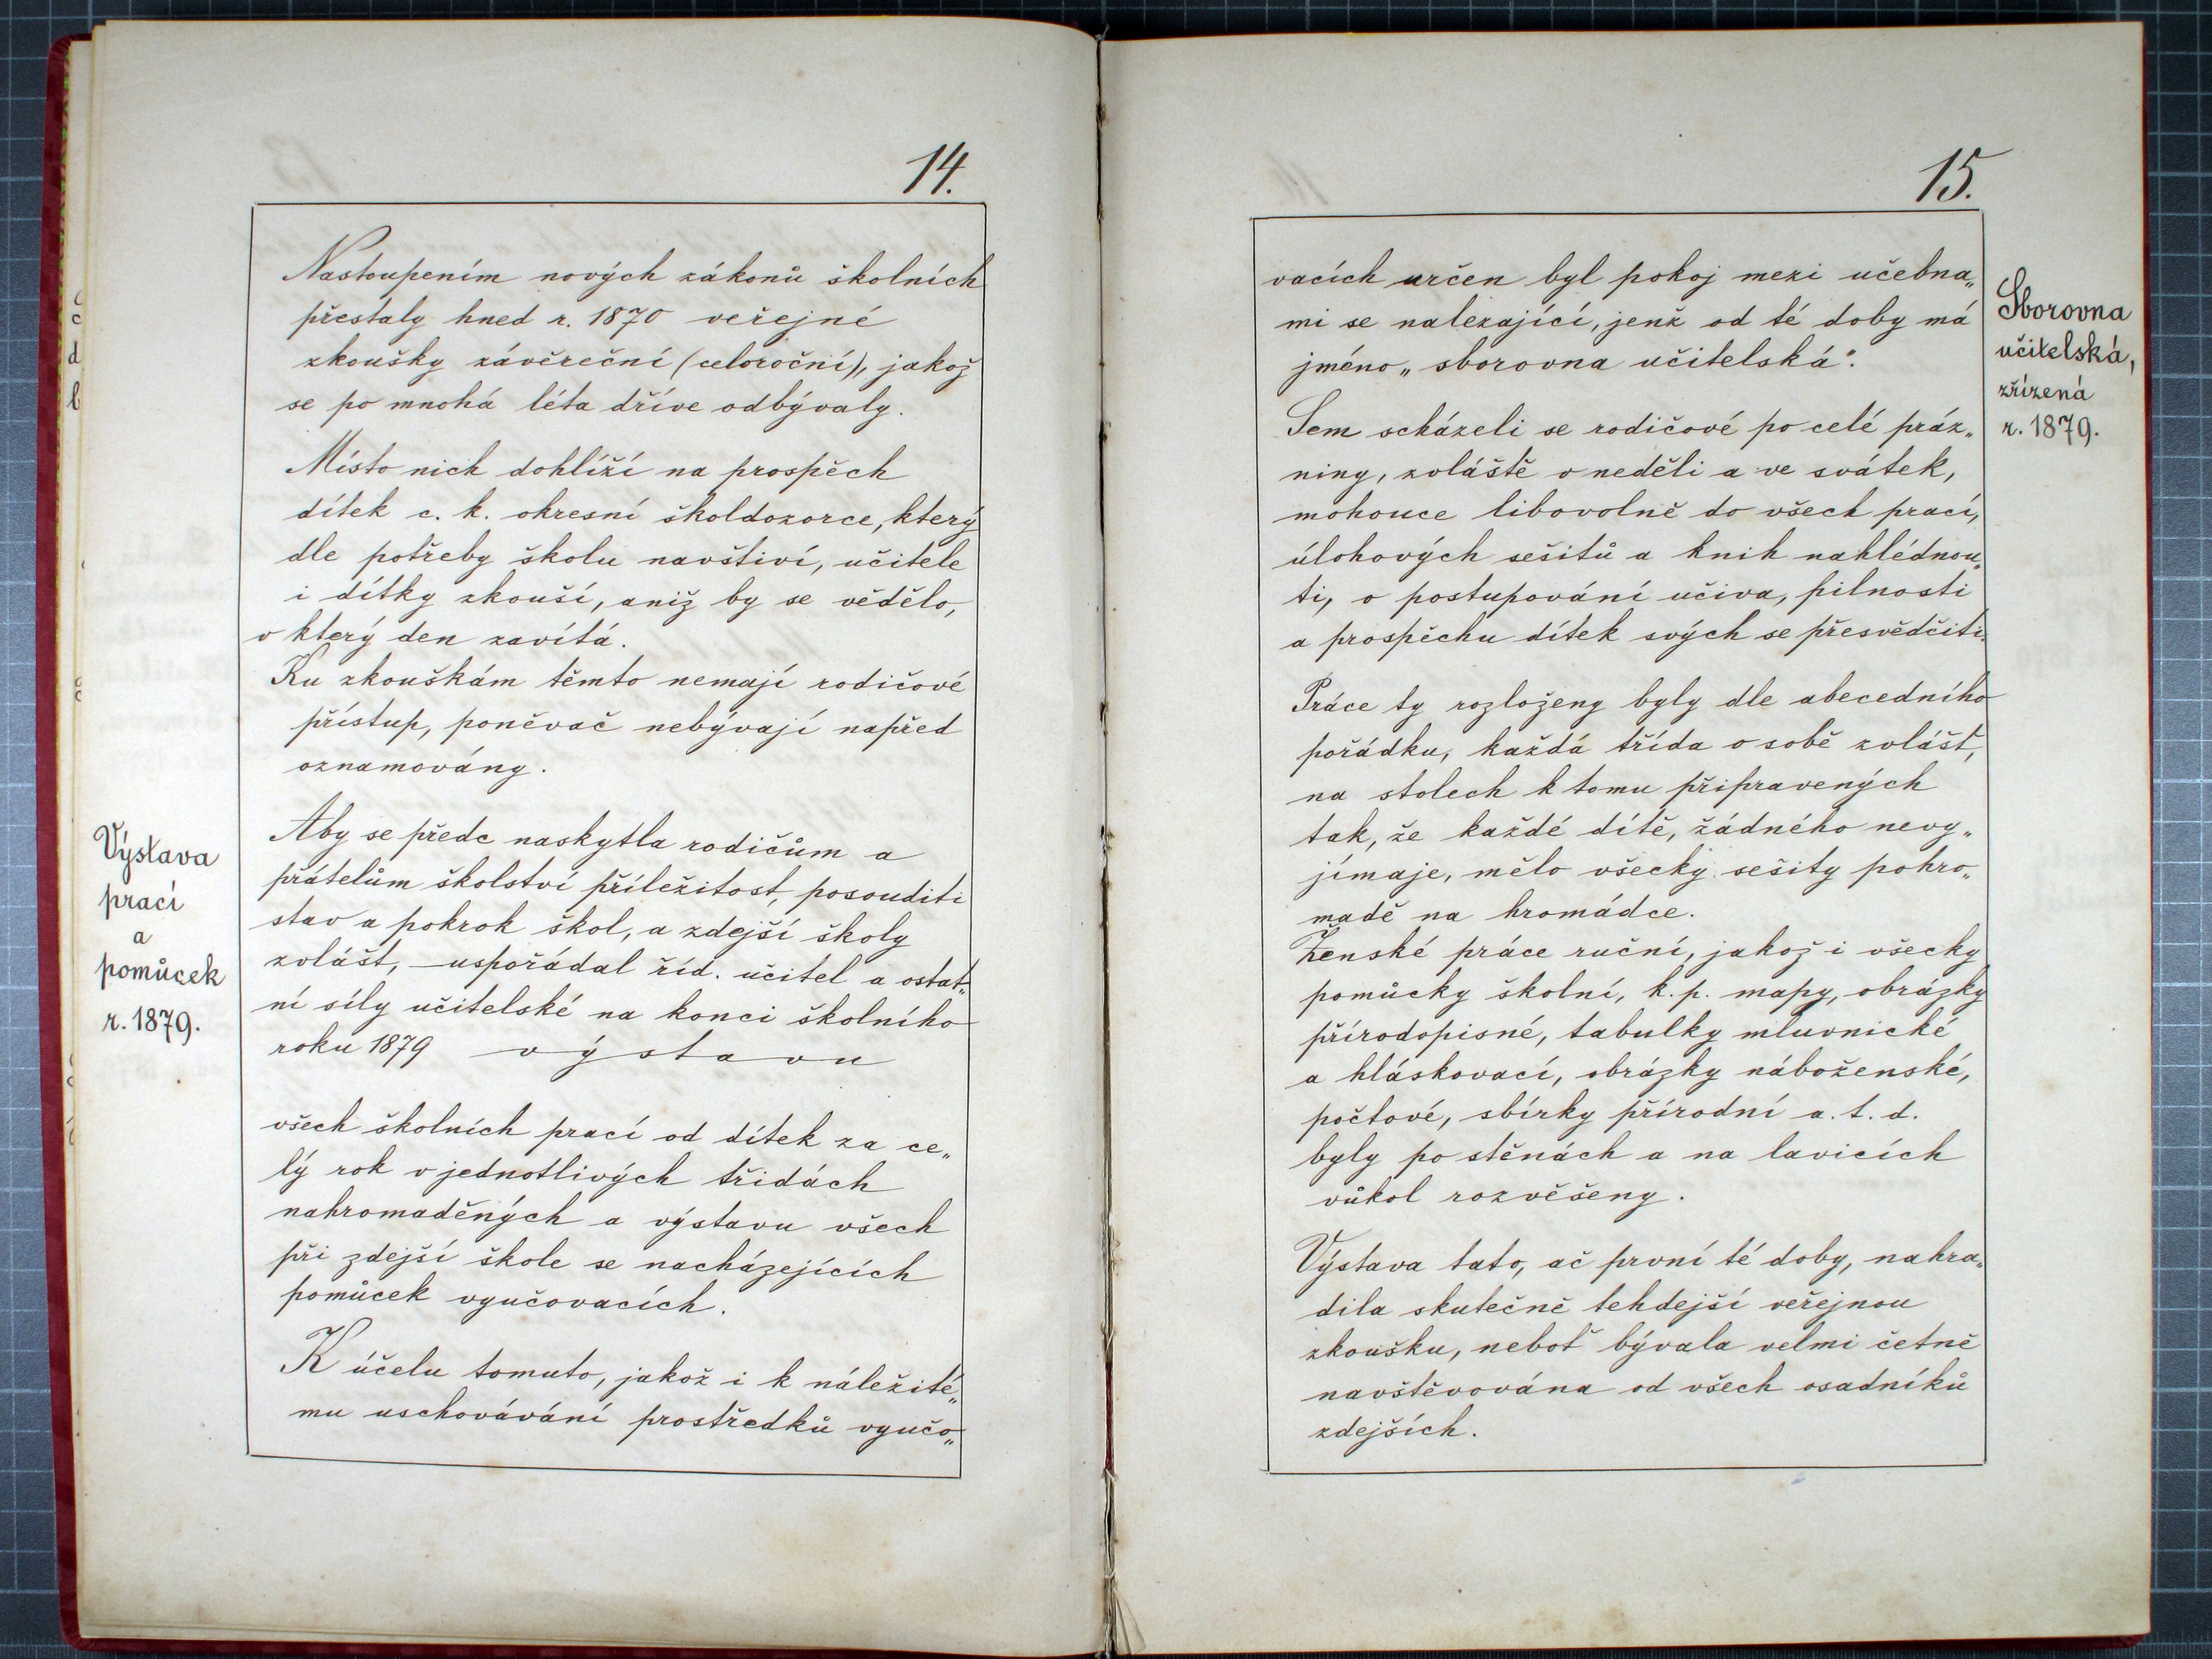 14.
Nastoupením nových zákonů školních
přestaly hned r. 1870 veřejné
zkoušky závěreční (celoroční), jakož
se po mnohá léta dříve odbývaly.
Místo nich dohlíží na prospěch
dítek c. k. okresní školdozorce, který
dle potřeby školu navštiví, učitele
i dítky zkouší, aniž by se vědělo,
v který den zavítá.
Ku zkouškám těmto nemají rodičové
přístup, poněvač nebývají napřed
oznamovány.
Aby se předc naskytla rodičům a
přátelům školství příležitost, posouditi
stav a pokrok škol, a zdejší školy
zvlášt, uspořádal říd. učitel a ostat„
ní síly učitelské na konci školního
roku 1879 výstavu
všech školních prací od dítek za ce„
lý rok v jednotlivých třidách
nahromaděných a výstavu všech
při zdejší škole se nacházejících
pomůcek vyučovacích.
K účelu tomuto, jakož i k náležité„
mu uschovávání prostředků vyučo„
Výstava
prací
a
pomůcek
r. 1879.
15.
vacích určen byl pokoj mezi učebna„
mi se nalezající, jenž od té doby má
jméno „sborovna učitelská“.
Sem scházeli se rodičové po celé práz„
niny, zvláště v neděli a ve svátek,
mohouce libovolně do všech prací,
úlohových sešitů a knih nahlédnou„
ti, o postupování učiva, pilnosti
a prospěchu dítek svých se přesvědčiti.
Práce ty rozloženy byly dle abecedního
pořádku, každá třída o sobě zvlášť,
na stolech k tomu připravených
tak, že každé dítě, žádného nevy„
jímaje, mělo všecky sešity pohro„
madě na hromádce.
Ženské práce ruční, jakož i všecky
pomůcky školní, k. p. mapy, obrázky
přírodopisné, tabulky mluvnické
a hláskovací, obrázky náboženské,
počtové, sbírky přírodní a. t. d.
byly po stěnách a na lavicích
vůkol rozvěšeny.
Výstava tato, ač první té doby, nahra„
dila skutečně tehdejší veřejnou
zkoušku, neboť bývala velmi četně
navštěvována od všech osadníků
zdejších.
Sborovna
učitelská,
zřízená
r. 1879.